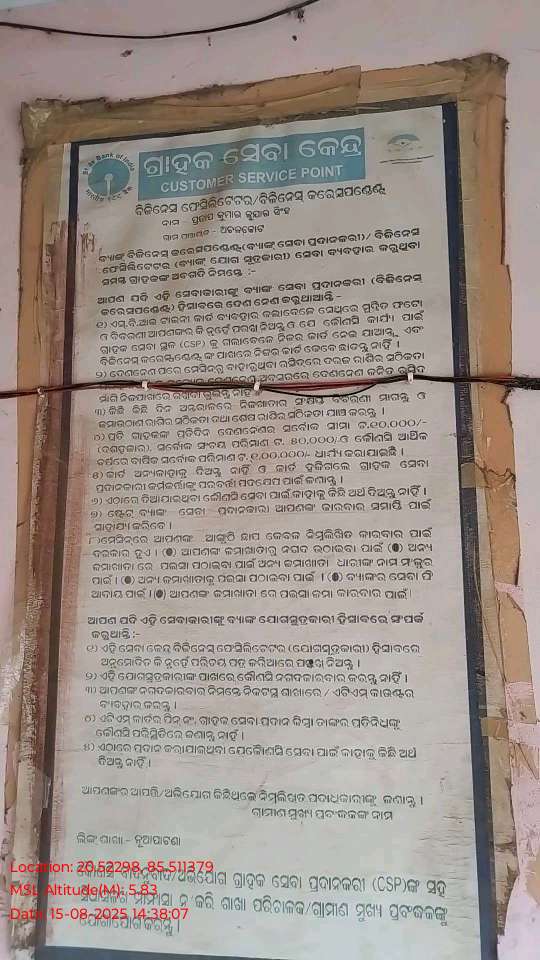 State Bank of India
ଗ୍ରାହକ ସେବା କେନ୍ଦ୍ର
CUSTOMER SERVICE POINT
ବିଜିନେସ ଫେସିଲିଟେଟର/ବିଜିନେସ କରେସପଣ୍ଡେଣ୍ଟ
ନାମ - ପ୍ରତାପ କୁମାର ସିଂହ
ଗ୍ରାମ ପଞ୍ଚାୟତ - ଅଚଳକୋଟ
ବ୍ୟାଙ୍କ ବିଜିନେସ୍ କରେସପଣ୍ଡେଣ୍ଟ(ବ୍ୟାଙ୍କ୍ ସେବା ପ୍ରଦାନକାରୀ)/ ବିଜିନେସ
ଫେସିଲିଟେଟର (ବ୍ୟାଙ୍କ୍ ଯୋଗ ସୂତ୍ରକାରୀ) ସେବା ବ୍ୟବହାର କରୁଥିବା
ସମସ୍ତ ଗ୍ରାହକଙ୍କ ଅବଗତି ନିମନ୍ତେ :-
ଆପଣ ଯଦି ଏହି ସେବାକାରୀଙ୍କୁ ବ୍ୟାଙ୍କ ସେବା ପ୍ରଦାନକାରୀ (ବିଜିନେସ୍
କରେସପଣ୍ଡେଣ୍ଟ) ହିସାବରେ ଦେଣ ନେଣ କରୁଥାଆନ୍ତି -
୧) ଏସ୍.ବି.ଆଇ ଟାଇନୀ କାର୍ଡ ବ୍ୟବହାର କଲାବେଳେ ସେଥିରେ ମୁଦ୍ରିତ ଫଟୋ
ଓ ବିବରଣୀ ଆପଣଙ୍କର କି ନୁହେଁ ପରଖି ନିଅନ୍ତୁ ଓ ଯେ କୌଣସି କାର୍ଯ୍ୟ ପାଇଁ
ଗ୍ରାହକ ସେବା ସ୍ଥଳ (CSP) କୁ ଗଲାବେଳେ ନିଜର କାର୍ଡ ନେଇ ଯାଆନ୍ତୁ, ଏବଂ
ବିଜିନେସ କରେସପଣ୍ଡେଣ୍ଟଙ୍କ ପାଖରେ ନିଜର କାର୍ଡ କେବେ ଛାଡନ୍ତୁ ନାହିଁ ।
୨) ଦେଣନେଣ ପରେ ମେସିନରୁ ବାହାରୁଥିବା ରସିଦରେ ଦରଜ ରାଶିର ସଠିକତା
ମାଗି ନିଜପାଖରେ
୩) କିଛି କିଛି ଦିନ ଅନ୍ତରାଳରେ ନିଜଖାତାର ସଂକ୍ଷିପ୍ତ ବିବରଣୀ ମାଗନ୍ତୁ ଓ
ଜମାଉଠାଣ ରାଶିର ସଠିକତା ତଥା ଶେଷ ରାଶିର ସଠିକତା ଯାଞ୍ଚ କରନ୍ତୁ ।
୪) ପ୍ରତି ଗ୍ରାହକଙ୍କ ପ୍ରତିଦିନ ଦେଣନେଣର ସର୍ବୋଚ୍ଚ ସୀମା ଟ.୧୦,୦୦୦/-
(ଦଶହଜାର), ସର୍ବୋଚ୍ଚ ସଂଚୟ ପରିମାଣ ଟ. ୫୦,୦୦୦/ ଓ କୌଣସି ଆର୍ଥିକ
ବର୍ଷରେ ବାର୍ଷିକ ସର୍ବୋଚ୍ଚ ପରିମାଣ ଟ.୧,୦୦,୦୦୦/- ଧାର୍ଯ୍ୟ କରାଯାଇଅଛି ।
୫) କାର୍ଡ ଅନ୍ୟକାହାକୁ ଦିଅନ୍ତୁ ନାହିଁ ଓ କାର୍ଡ ହଜିଗଲେ ଗ୍ରାହକ ସେବା
ପ୍ରଦାନକାରୀ କର୍ମକର୍ତ୍ତାଙ୍କୁ ପରବର୍ତ୍ତୀ ପଦକ୍ଷେପ ପାଇଁ ଜଣାନ୍ତୁ ।
୬) ଏଠାରେ ଦିଆଯାଇଥିବା କୌଣସି ସେବା ପାଇଁ କାହାକୁ କିଛି ଅର୍ଥ ଦିଅନ୍ତୁ ନାହିଁ ।
୭) ଷ୍ଟେଟ୍ ବ୍ୟାଙ୍କ ସେବା ପ୍ରଦାନକାରୀ ଆପଣଙ୍କ କାରବାର ସମାପ୍ତି ପାଇଁ
ସାହାଯ୍ୟ କରିବେ ।
୮) ମେସିନରେ ଆପଣଙ୍କ ଆଙ୍ଗୁଠି ଛାପ କେବଳ ନିମ୍ନଲିଖିତ କାରବାର ପାଇଁ
ଦରକାର ହୁଏ । (●) ଆପଣଙ୍କ ଜମାଖାତାରୁ ନଗଦ ଉଠାଇବା ପାଇଁ (●) ଅନ୍ୟ
ଜମାଖାତା ରେ ପଇସା ପଠାଇବା ପାଇଁ ଅନ୍ୟ ଜମାଖାତା ଧାରୀଙ୍କ ନାମ ମଂଜୁର
ପାଇଁ । (●) ଅନ୍ୟ ଜମାଖାତାକୁ ପଇସା ପଠାଇବା ପାଇଁ । (●) ବ୍ୟାଙ୍କର ସେବା ଫି
ଆଦାୟ ପାଇଁ । (●) ଆପଣଙ୍କ ଜମାଖାତା ରେ ପଇସା ଜମା କାରବାର ପାଇଁ
ଆପଣ ଯଦି ଏହି ସେବାକାରୀଙ୍କୁ ବ୍ୟାଙ୍କ ଯୋଗସୂତ୍ରକାରୀ ହିସାବରେ ସଂପର୍କ
କରୁଥାନ୍ତି :-
୧) ଏହି ସେବା କେନ୍ଦ୍ର ବିଜିନେସ୍ ଫେସିଲିଟେଟର (ଯୋଗସୂତ୍ରକାରୀ) ହିସାବରେ
ଅନୁମୋଦିତ କି ନୁହେଁ ପରିଚୟ ପତ୍ର କରିଆରେ ନିଅନ୍ତୁ ।
୨) ଏହି ଯୋଗସୂତ୍ରକାରୀଙ୍କ ପାଖରେ କୌଣସି ନଗଦକାରବାର କରନ୍ତୁ ନାହିଁ ।
୩) ଆପଣଙ୍କ ନଗଦକାରବାର ନିମନ୍ତେ ନିକଟସ୍ଥ ଶାଖାରେ / ଏଟିଏମ୍ କାଉଣ୍ଟର
ବ୍ୟବହାର କରନ୍ତୁ ।
୪) ଏଟିଏମ୍ କାର୍ଡର ପିନ୍ ନଂ, ଗ୍ରାହକ ସେବା ପ୍ରଦାନ କିମ୍ବା ତାଙ୍କର ପ୍ରତିନିଧିଙ୍କୁ
କୌଣସି ପରିସ୍ଥିତିରେ ଜଣାନ୍ତୁ ନାହିଁ ।
୫) ଏଠାରେ ପ୍ରଦାନ କରାଯାଉଥିବା ଯେକୌଣସି ସେବା ପାଇଁ କାହାକୁ କିଛି ଅର୍ଥ
ଦିଅନ୍ତୁ ନାହିଁ ।
ଆପଣଙ୍କର ଆପତ୍ତି/ଅଭିଯୋଗ କିଛିଥିଲେ ନିମ୍ନଲିଖିତ ପଦାଧିକାରୀଙ୍କୁ ଜଣାନ୍ତୁ ।
ଗ୍ରାମୀଣ ମୁଖ୍ୟ ପ୍ରବନ୍ଧକଙ୍କ ନାମ
ଲିଙ୍କ୍ ଶାଖା - ନୂଆପାଟଣା
ଗ୍ରାହକ ସେବା ପ୍ରଦାନକାରୀ (CSP)ଙ୍କ ସହ
ମୀମାଂସା ନ କରି ଶାଖା ପରିଚାଳକ/ଗ୍ରାମୀଣ ମୁଖ୍ୟ ପ୍ରବନ୍ଧକଙ୍କୁ
ଯୋଗାଯୋଗ କରନ୍ତୁ ।
Location: 20.52298, 85.511379
MSL Altitude(M): 5.83
Date: 15-08-2025 14:38:07